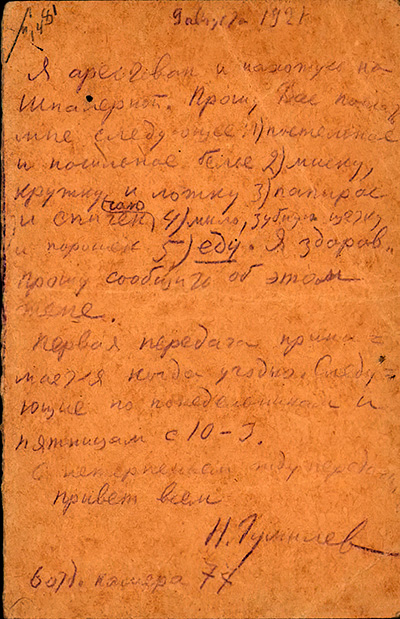 9 августа 1921
Я арестован и нахожусь на
Шпалерной. Прошу Вас послать
мне следующее: 1) постельное
и носильное белье 2) миску,
кружку и ложку 3) папирос
и спичек, чаю 4) мыло, зубную щетку
и порошек 5) еду. Я здоров.
прошу сообщить об этом
жене.
Первая передача прини-
мается когда угодно. Следу-
ющие по понедельникам и
пятницам с 10-3.
С нетерпением жду переда-
Привет всем
Н. Гумилев
6 отд. камера 77